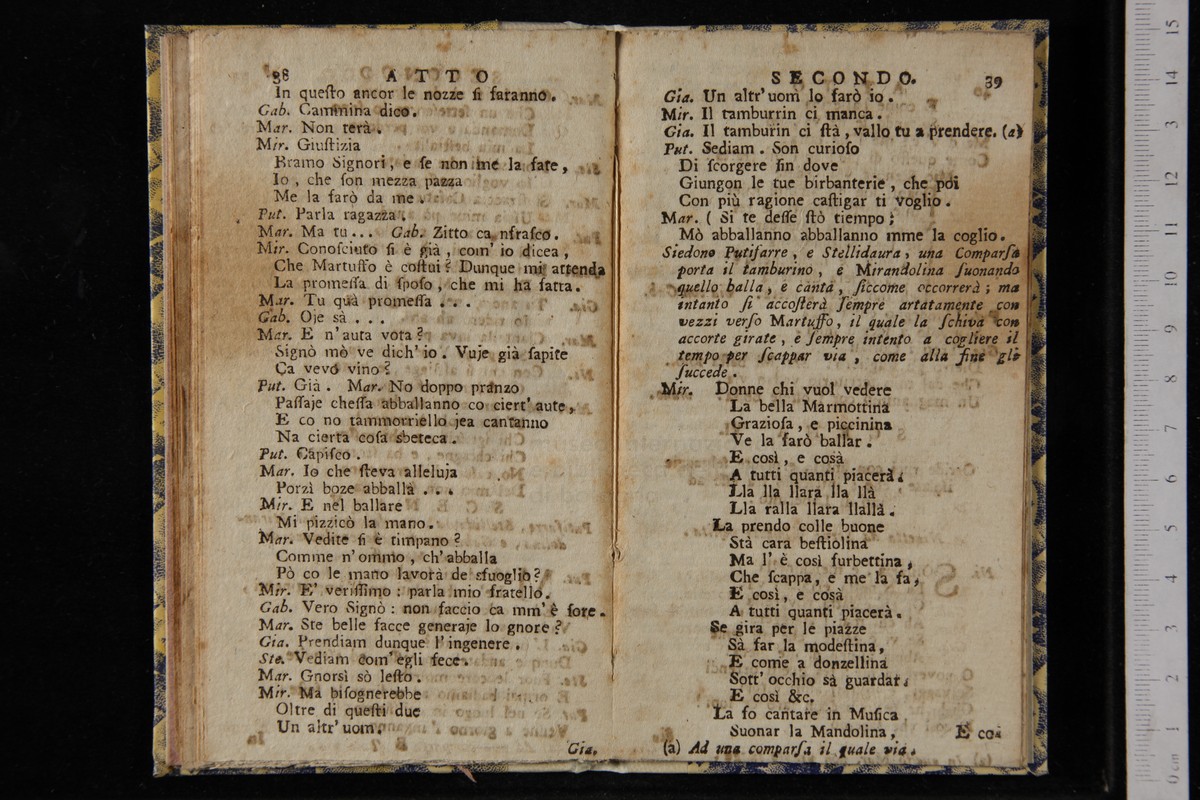 38 ATTO
In queſto ancor le nozze ſi faranno.
Gab. Cammina dico.
Mar. Non terà.
Mir. Giuſtizia
Bramo Signori, e ſe non me la fate,
Io, che ſon mezza pazza
Me la farò da me.
Put. Parla ragazza.
Mar. Ma tu... Gab. Zitto ca nfraſco.
Mir. Conoſciuto ſi è già, com' io dicea,
Che Martuffo è coſtui? Dunque mi attenda
La promeſſa di ſpoſo, che mi ha fatta.
Mar. Tu quà promeſſa ...
Gab. Oje sà ...
Mar. E n'auta vota?
Signò mò ve dich' io. Vuje già ſapite
Ca vevo vino?
Put. Già. Mar. No doppo pranzo
Paſſaje cheſſa abballanno co ciert' aute,
E co no tammorriello jea cantanno
Na cierta coſa sbeteca.
Put. Capiſco.
Mar. Io che ſteva alleluja
Porzì boze abballà ...
Mir. E nel ballare
Mi pizzicò la mano.
Mar. Vedite ſi è timpano?
Comme n' ommo, ch' abballa
Pò co le mano lavorà de sfuoglio?
Mir. E' veriſſimo: parla mio fratello.
Gab. Vero Signò: non faccio ca mm' è ſore.
Mar. Ste belle facce generaje lo gnore?
Gia. Prendiam dunque l' ingenere.
Ste. Vediam com' egli fece.
Mar. Gnorsì sò leſto.
Mir. Ma biſognerebbe
Oltre di queſti due
Un altr' uom.
Gia.
SECONDO. 39
Gia. Un altr' uom lo farò io.
Mir. Il tamburrin ci manca.
Gia. Il tamburin ci ſtà, vallo tu a prendere. (a)
Put. Sediam. Son curioſo
Di ſcorgere ſin dove
Giungon le tue birbanterie, che poi
Con più ragione caſtigar ti voglio.
Mar. (Si te deſſe ſtò tiempo;
Mò abballanno abballanno mme la coglio.
Siedono Putifarre, e Stellidaura, una Comparſa
porta il tamburino, e Mirandolina ſuonando
quello balla, e canta, ſiccome occorrerà; ma
intanto ſi accoſterà ſempre artatamente con
vezzi verſo Martuffo, il quale la ſchiva con
accorte girate, e ſempre intento a cogliere il
tempo per ſcappar via, come alla fine gli
ſuccede.
Mir. Donne chi vuol vedere
La bella Marmottina
Grazioſa, e piccinina
Ve la farò ballar.
E così, e cosà
A tutti quanti piacerà.
Lla lla llara lla llà
Lla ralla llara llallà.
La prendo colle buone
Stà cara beſtiolina
Ma l' è così furbettina,
Che ſcappa, e me la fa,
E così, e cosà
A tutti quanti piacerà.
Se gira per le piazze
Sà far la modeſtina,
E come a donzellina
Sott' occhio sà guardar.
E così &c.
La fo cantare in Muſica
Suonar la Mandolina,
E co-
(a) Ad una comparſa il quale via.